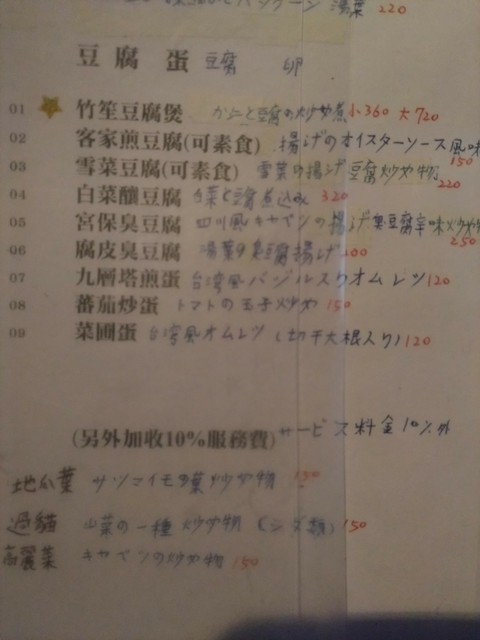 湯葉 220
豆腐蛋 豆腐 卵
01 竹笙豆腐煲 かにと豆腐の炒め煮 小360 大720
02 客家煎豆腐(可素食) 揚げのオイスターソース風味 150
03 雪菜豆腐(可素食) 雪菜の揚げ豆腐炒め物 220
04 白菜釀豆腐 白菜と豆腐煮込み 320
05 宮保臭豆腐 四川風キャベツの揚げ臭豆腐辛味炒め 250
06 腐皮臭豆腐 湯葉の臭豆腐揚げ 200
07 九層塔煎蛋 台湾風バジル入りオムレツ 120
08 蕃茄炒蛋 トマトの玉子炒め 150
09 菜圃蛋 台湾風オムレツ (切干大根入り) 120
(另外加收10%服務費) サービス料金10%外
地瓜葉 サツマイモの葉炒め物 150
過貓 山菜の一種 炒め物 (シダ類) 150
高麗菜 キャベツの炒め物 150